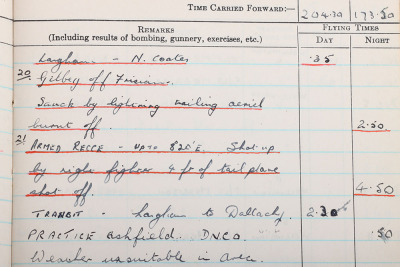 TIME CARRIED FORWARD:— 204.30 173.50
REMARKS
(Including results of bombing, gunnery, exercises, etc.)
FLYING TIMES
DAY NIGHT
Langham - N. Coates .35
20. Gilbey off Frisian.
Struck by lightning trailing aerial
burnt off. 2.50
21 ARMED RECCE - UP TO 820'E. Shot up
by night fighter 4 ft of tail plane
shot off. 4.50
TRANSIT - Langham to Dallachy. 2.30
PRACTICE Ashfield. D.N.C.O. .50
Weather unsuitable in area.